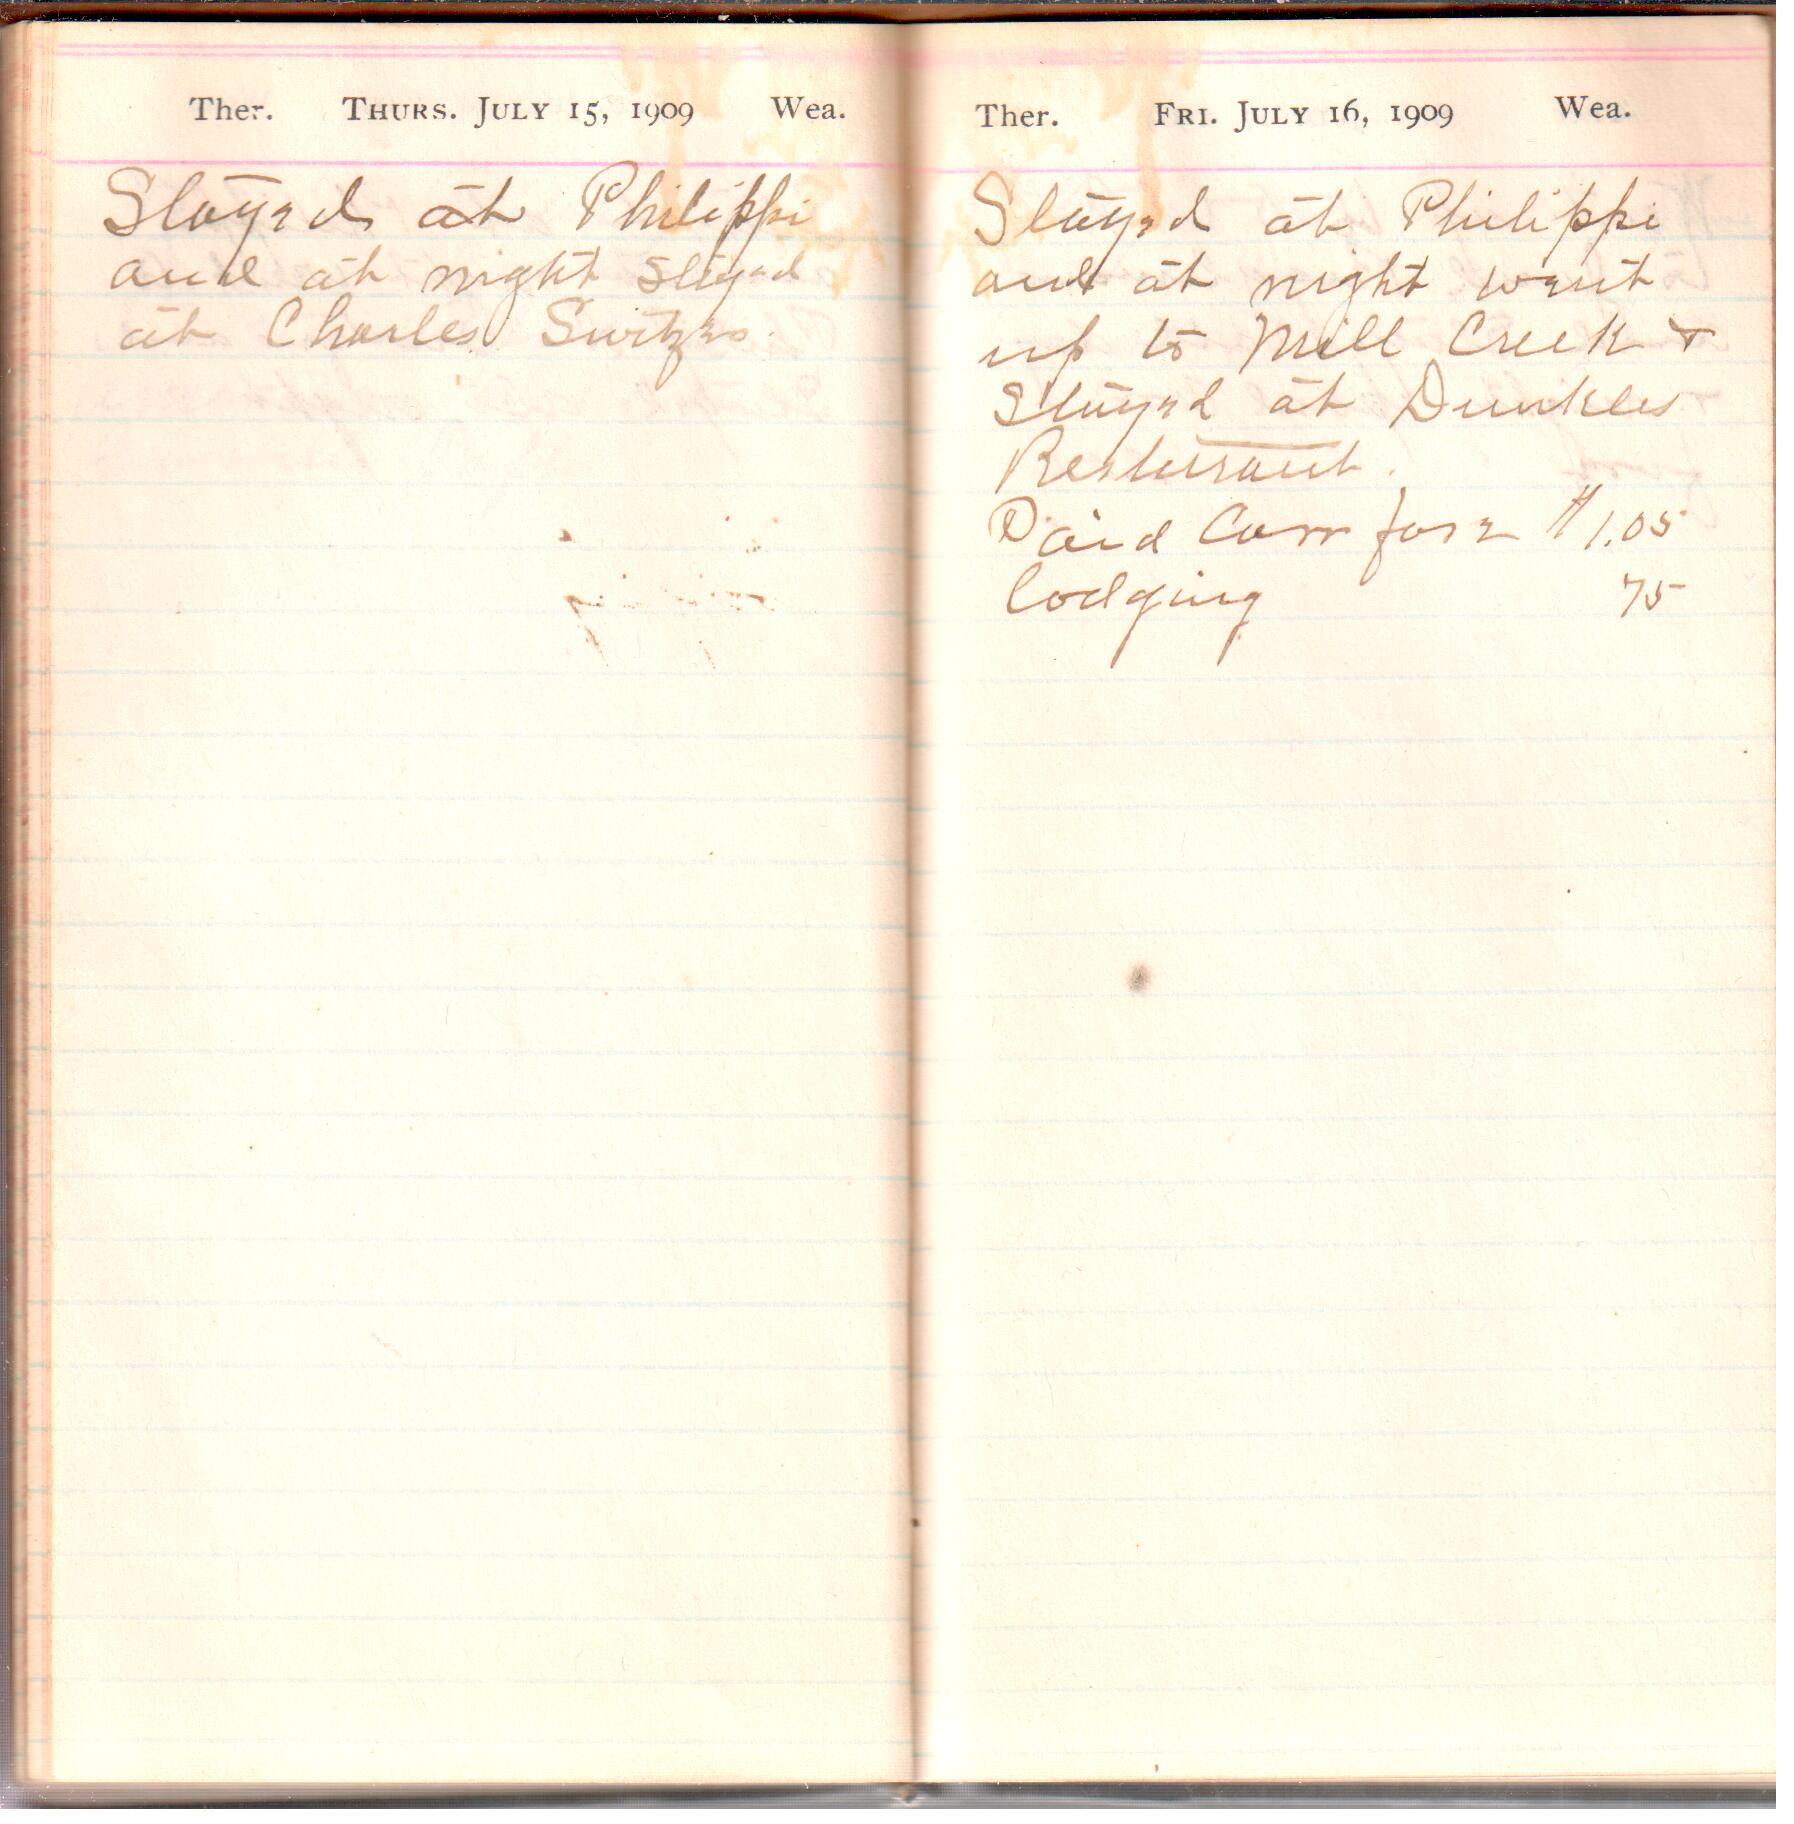 Ther. THURS. JULY 15, 1909 Wea.
Stayed at Philippi
and at night stayed
at Charles Switzes.
Ther. FRI. JULY 16, 1909 Wea.
Stayed at Philippi
and at night went
up to Mill Creek &
stayed at Dunkles
Resturant.
Paid Carr fare $1.05
lodging 75